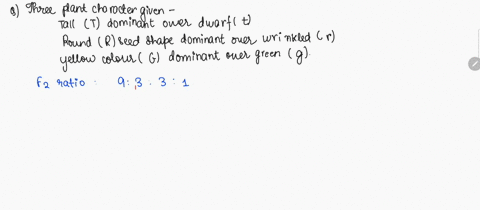 Q) Three plant character given -
Tall (T) dominant over dwarf (t)
Round (R) seed shape dominant over wrinkled (r)
yellow colour (G) dominant over green (g).
F2 ratio : 9 : 3 . 3 : 1